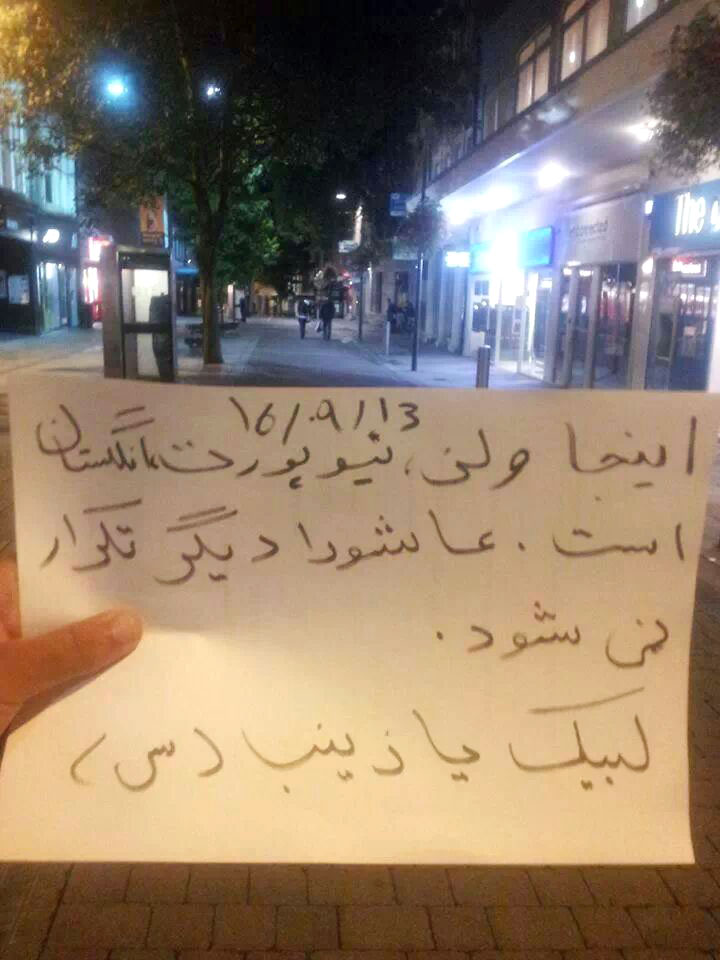 16/09/13
اینجا ولز، نیوپورت، انگلستان
است. عاشورا دیگر تکرار
نمی شود.
لبیک یا زینب (س)
The